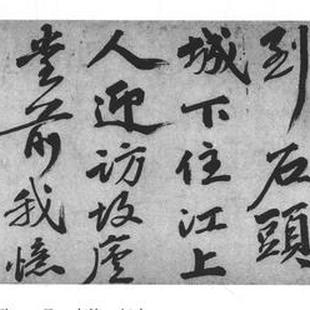 到石頭
城下住江上
人迎訪故廬
堂前我憶